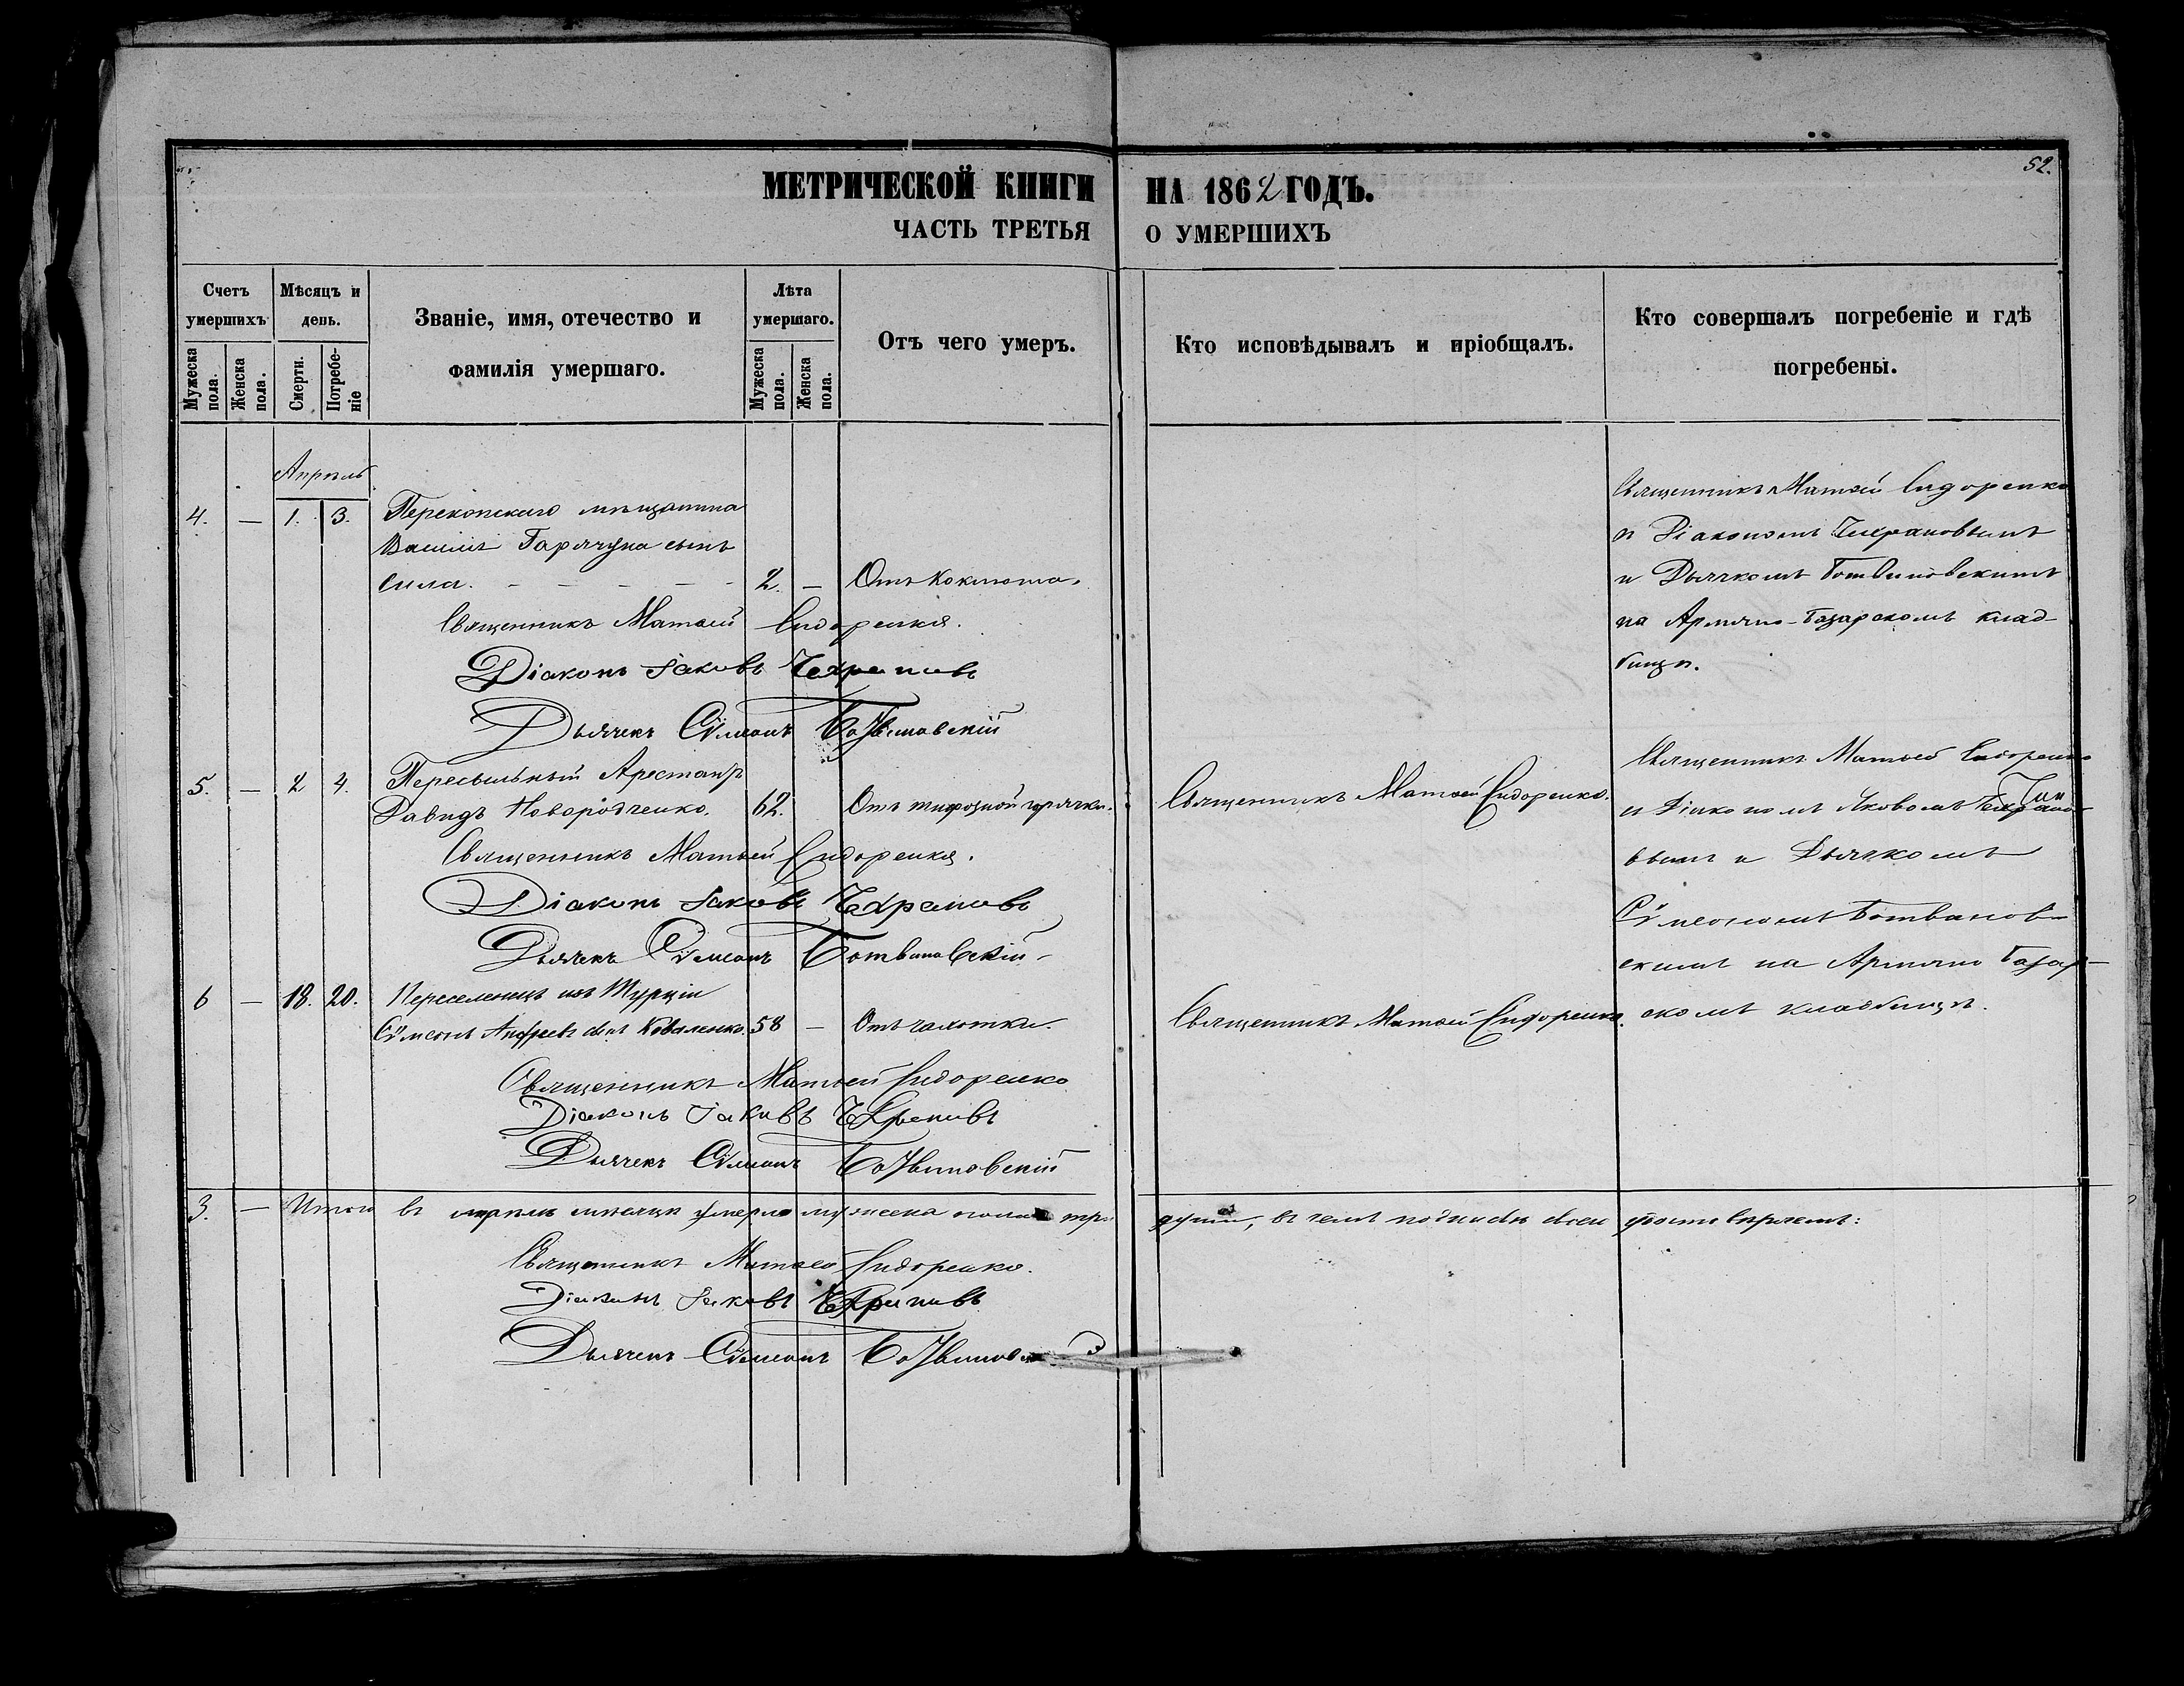 52.
МЕТРИЧЕСКОЙ КНИГИ НА 1862 ГОДЪ.
ЧАСТЬ ТРЕТЬЯ О УМЕРШИХЪ
Счетъ умершихъ
Мужеска пола.
Женска пола.
Мѣсяцъ и день.
Смерти.
Погребеніе
Званіе, имя, отечество и фамилія умершаго.
Лѣта умершаго.
Мужеска пола.
Женска пола.
Отъ чего умеръ.
Кто исповѣдывалъ и пріобщалъ.
Кто совершалъ погребеніе и гдѣ погребены.
Апрѣль
4. — 1. 3. Перекопскаго мѣщанина
Василія Горячуна сынъ
Сила. 2. — Отъ Коклюша.
Священникъ Матѳей Сидоренко
и Діакономъ Чехрановымъ
и Дьячкомъ Ботвиновскимъ
на Армяно-Базарскомъ клад-
бищѣ.
Священникъ Матѳей Сидоренко.
Діаконъ Іаковъ Чехрановъ
Дьячекъ Сѵмеонъ Ботвиновскій
5. — 2 4. Пересыльный Арестантъ
Давидъ Новородченко. 62. Отъ тифозной горячки. Священникъ Матѳей Сидоренко.
Священникъ Матѳей Сидоренко
и Діакономъ Яковомъ Чехрано-
вымъ и Дьячкомъ
Сѵмеономъ Ботвинов-
скимъ на Армяно Базар-
скомъ кладбищѣ.
Священникъ Матѳей Сидоренко.
Діаконъ Іаковъ Чехрановъ
Дьячекъ Сѵмеонъ Ботвиновскій
6 — 18. 20. Переселенецъ изъ Турціи
Сѵмеонъ Андреевъ сынъ Коваленко. 58 — Отъ чахотки. Священникъ Матѳей Сидоренко.
Священникъ Матѳей Сидоренко
Діаконъ Іаковъ Чехрановъ
Дьячекъ Сѵмеонъ Ботвиновскій
3. — Итого въ апрѣлѣ мѣсяцѣ умерло мужеска пола три души, въ чемъ подписью своею удостовѣряемъ:
Священникъ Матѳей Сидоренко.
Діаконъ Іаковъ Чехрановъ
Дьячекъ Сѵмеонъ